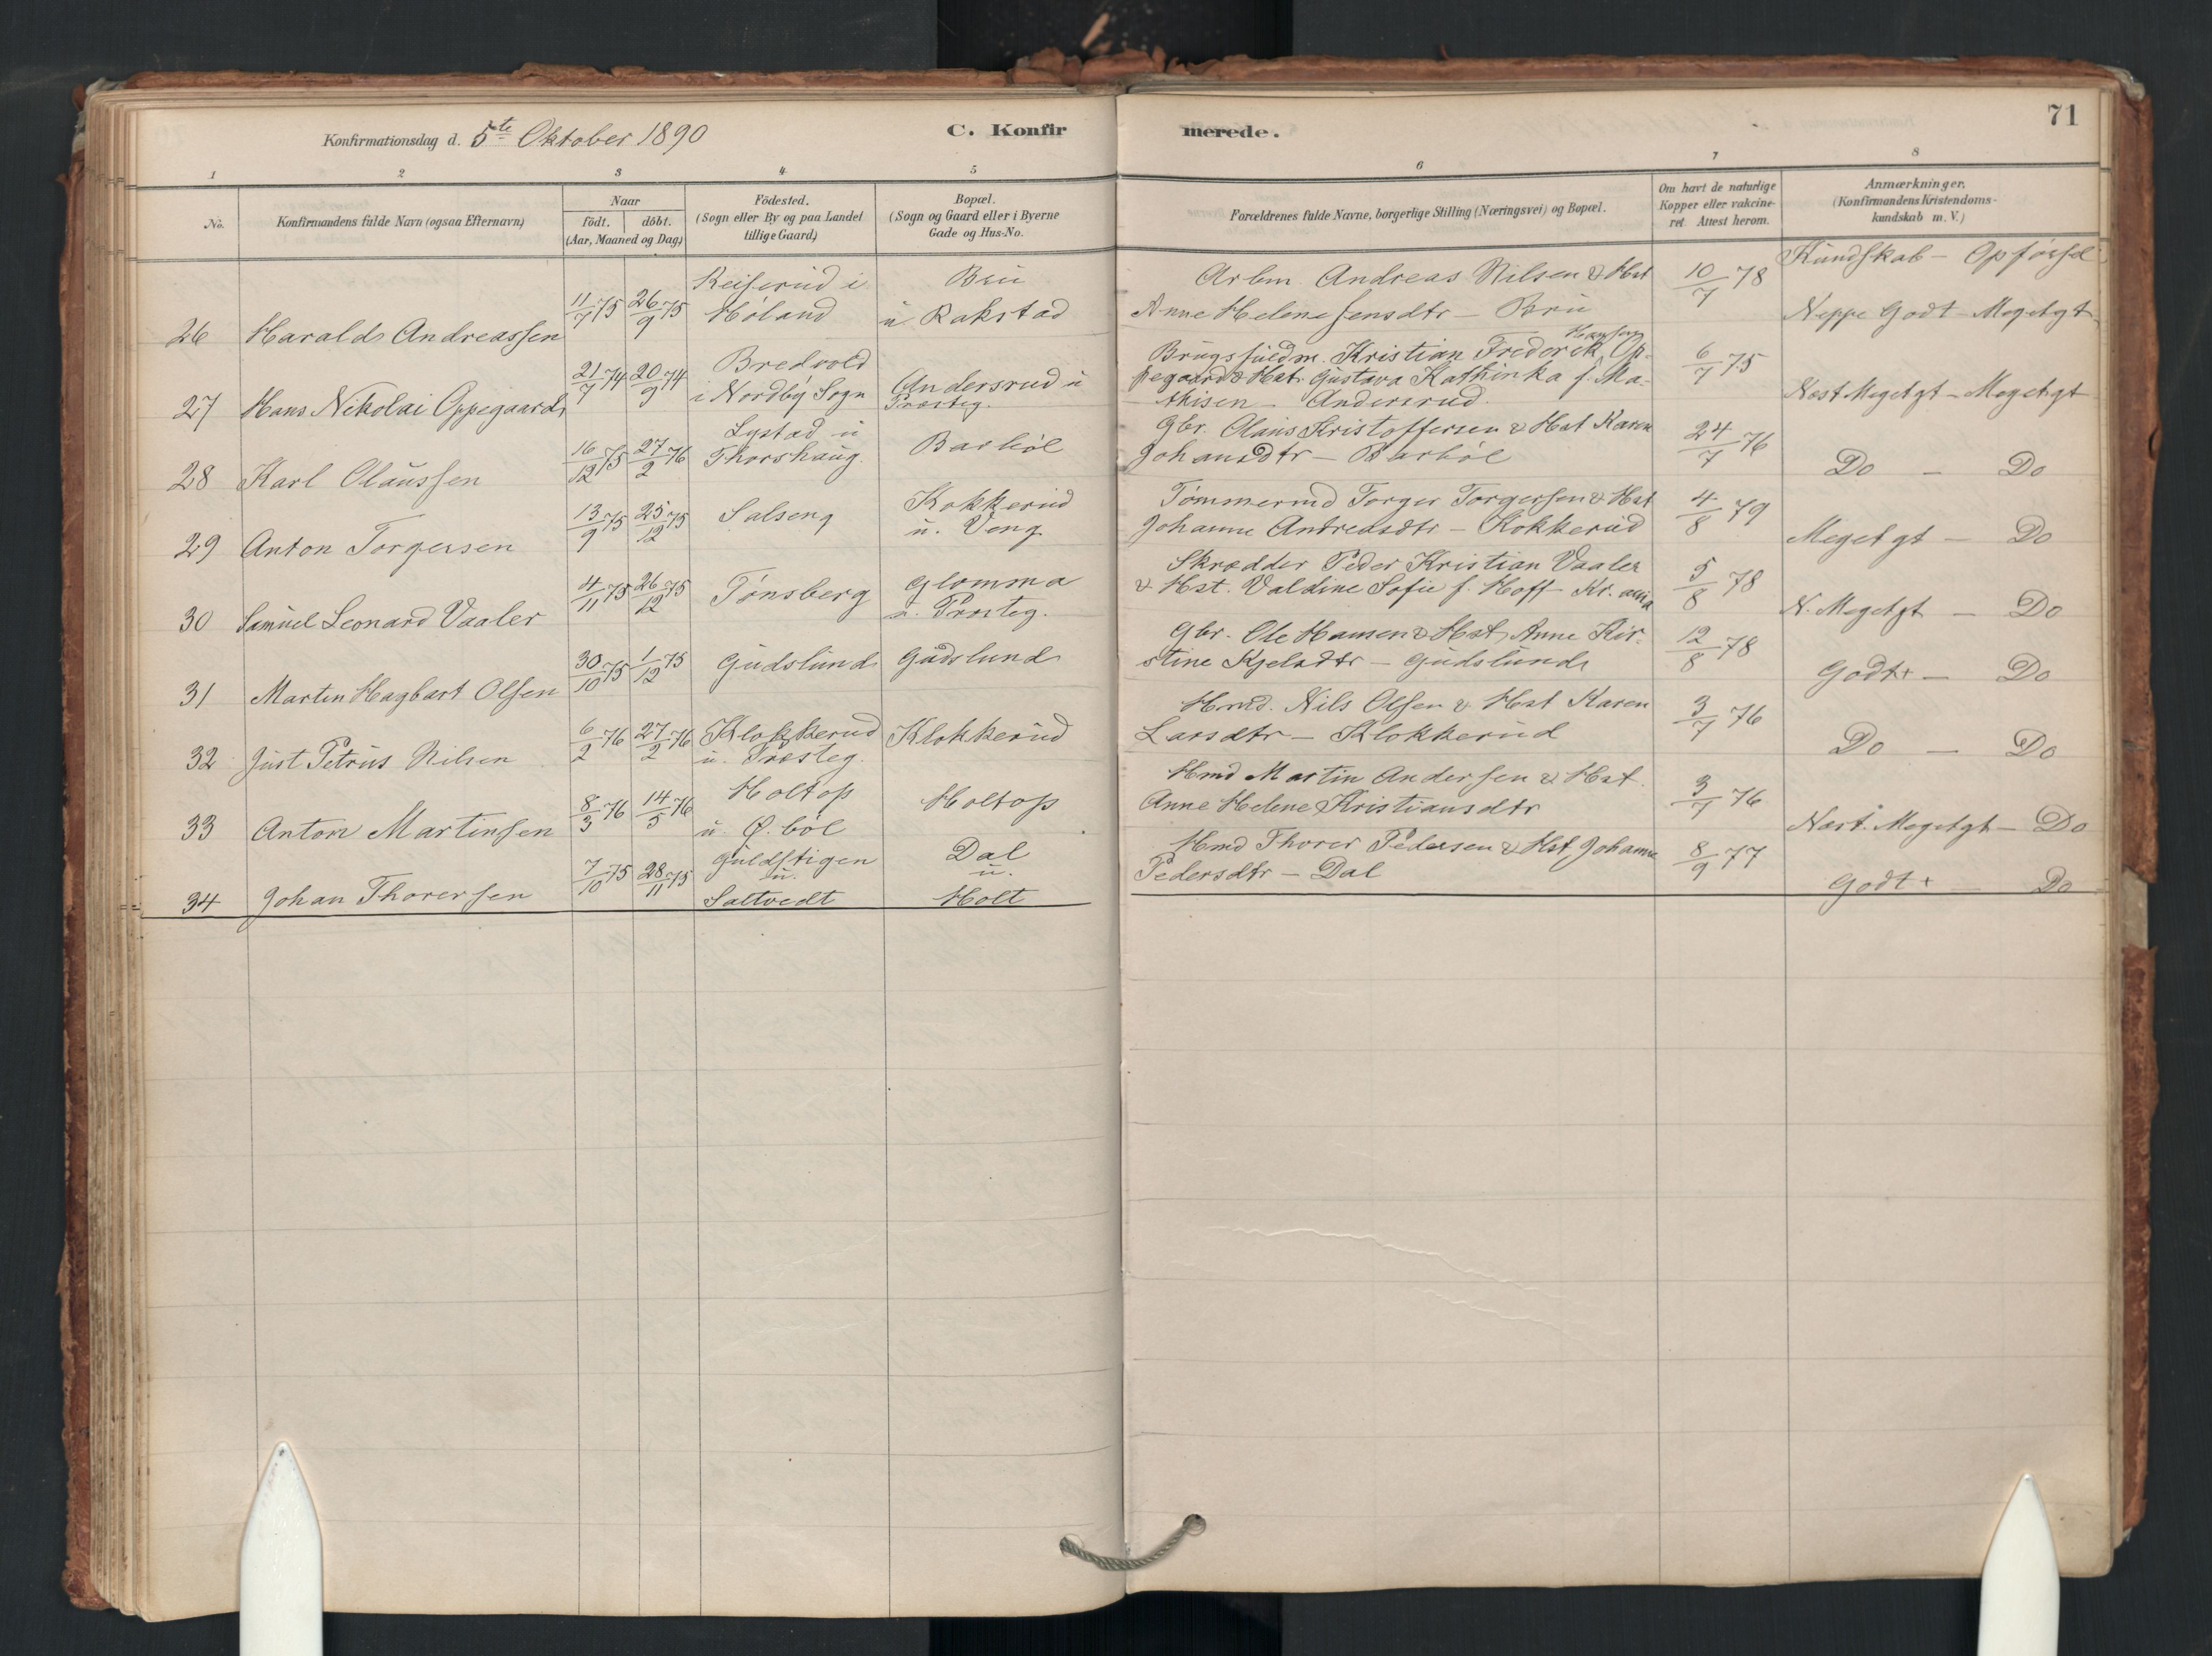 71
Konfirmationsdag d. 5te Oktober 1890
C. Konfirmerede.
1 2 3 4 5 6 7 8
No.
Konfirmandens fulde Navn (ogsaa Efternavn)
Naar
födt. döbt.
(Aar, Maaned og Dag)
Födested.
(Sogn eller By og paa Landet
tillige Gaard)
Bopæl.
(Sogn og Gaard eller i Byerne
Gade og Hus-No.
Forældrenes fulde Navne, borgerlige Stilling (Næringsvei) og Bopæl.
Om havt de naturlige
Kopper eller vakcine-
ret. Attest herom.
Anmærkninger,
(Konfirmandens Kristendoms-
kundskab m. V.)
Kundskab - Opførsel
26 Harald Andreassen 11/7 75 26/9 75
Reiserud i
Høland
Bru
u Rakstad
Arbm Andreas Nilsen & Hst
Anne Helene Jensdtr - Bru
10/7 78
Neppe Godt - Megetgt
27 Hans Nikolai Oppegaard 21/7 74 20/9 74
Bredvold
i Nordby Sogn
Andersrud u
Præsteg.
Hansen
Brugsfuldm. Kristian Frederik Op-
pegaard & Hst. Gustava Kathinka f. Ma-
thisen - Andersrud.
6/7 75
Næst Megetgt - Megetgt
28 Karl Olaussen 16/12 75 27/2 76
Lystad u
Thorshaug.
Barbøl
Gbr. Olaus Kristoffersen & Hst Karen
Johansdtr - Barbøl
24/7 76
Do - Do
29 Anton Torgersen 13/9 75 25/12 75
Salseng
Kokkerud
u. Veng
Tømmermd Torger Torgersen & Hst
Johanne Andreasdtr - Kokkerud
4/8 79
Meget gt - Do
30 Samuel Leonard Vaaler 4/11 75 26/12 75
Tønsberg
Glomma
u. Præsteg.
Skrædder Peder Kristian Vaaler
& Hst. Valdine Sofie f. Hoff - Kr. ania
5/8 78
N. Megetgt - Do
31 Martin Hagbart Olsen 30/10 75 1/12 75
Gudslund
Gudslund
Gbr. Ole Hansen & Hst Anne Kir-
stine Kjelsdtr - Gudslund
12/8 78
Godt+ - Do
32 Just Petrus Nilsen 6/2 76 27/2 76
Klokkerud
u. Præsteg.
Klokkerud
Hmd. Nils Olsen & Hst Karen
Larsdtr - Klokkerud
3/7 76
Do - Do
33 Anton Martinsen 8/3 76 14/5 76
Holtop
u. Ø. bøl
Holtop
Hmd Martin Andersen & Hst.
Anne Helene Kristiansdtr
3/7 76
Næst. Megetgt - Do
34 Johan Thorersen 7/10 75 28/11 75
Guldstigen
u.
Saltvedt
Dal
u.
Holt
Hmd Thorer Pedersen & Hst Johanne
Pedersdtr - Dal
8/9 77
Godt + - Do